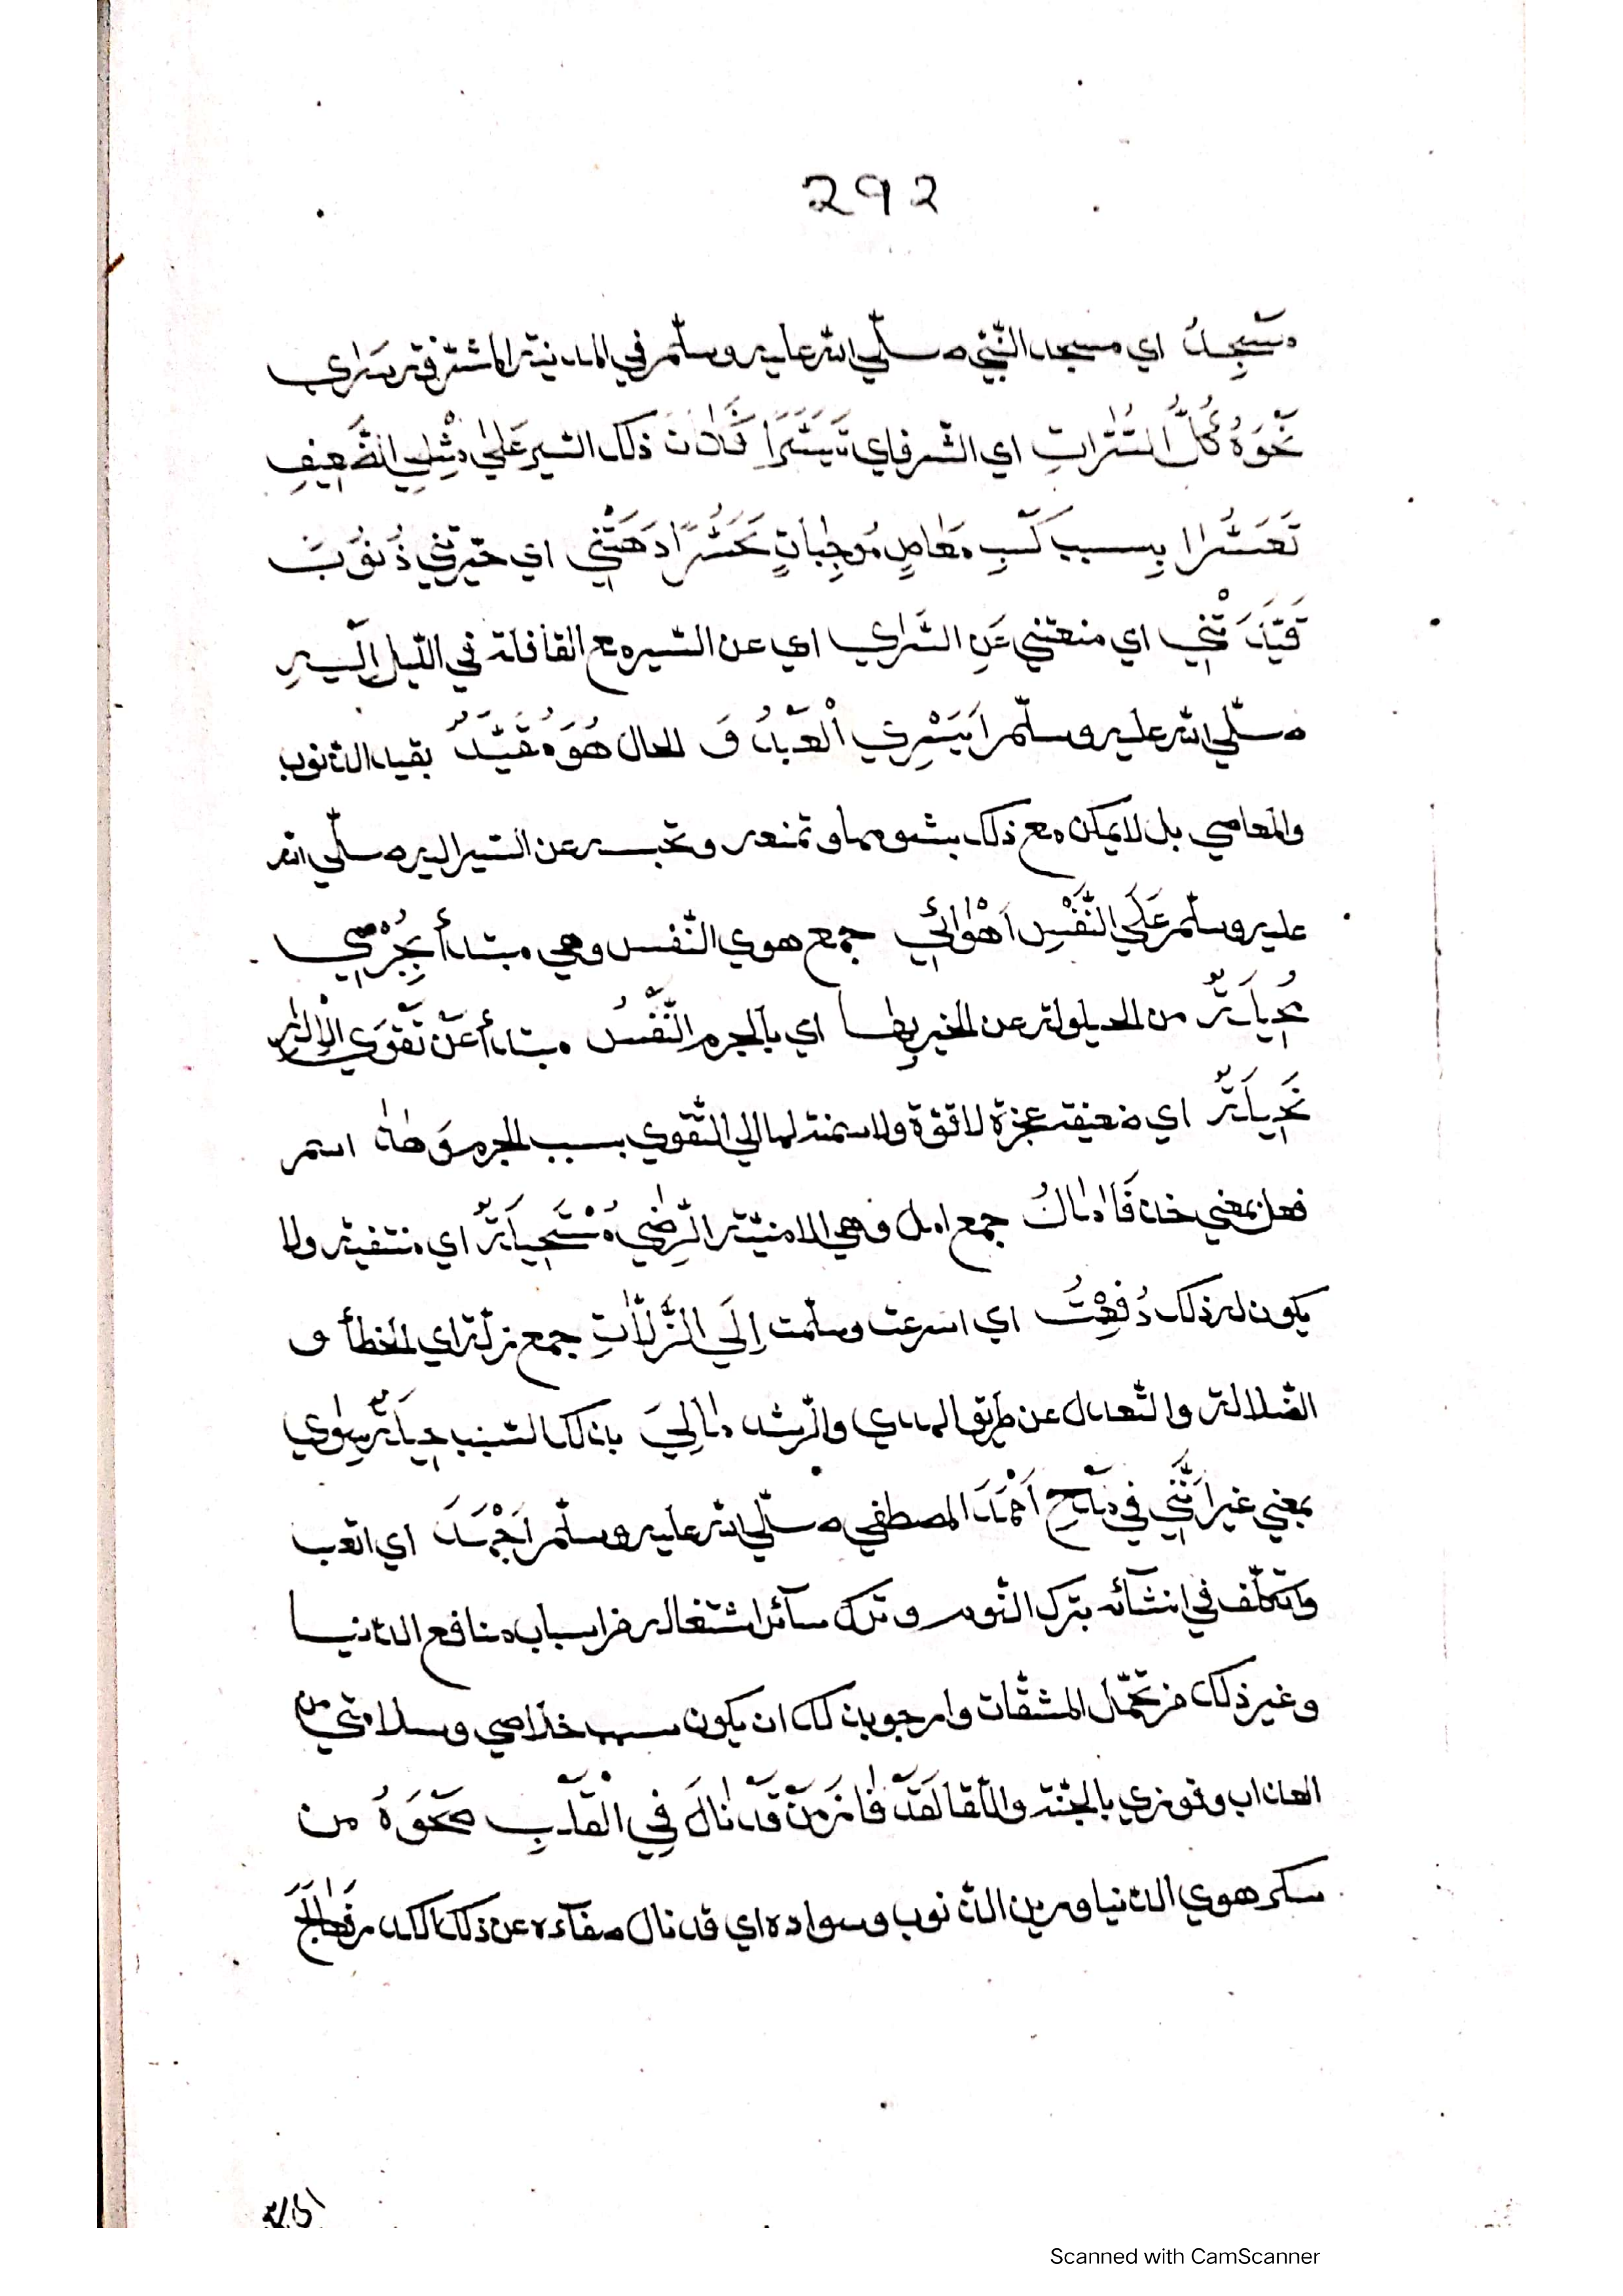 292
مسجدُ اي مسجد النّبيّ صلّي الله عليه وسلّم في المدينة المشرّفة سَرٰي
نَحْوَهُ كُلُّ السُّرٰاتِ اي الشرفاي تَيَسَّرَا فَكٰانَ ذلك السّير عَلٰي مِثْلِي الضَّعِيفِ
تَعَسُّرا بِسبب كَسْبِ مَعٰاصٍ مُوجِبٰاتٍ تَحَسُّرًا دَهَتْنِي اي حيّرتني ذُنُوْبٌ
قَيَّدَتْنِي اي منعتني عَنِ السُّرٰي اي عن السّير مع القافلة في اللّيل اِلَيهِ
صلّي الله عليه وسلّم اَيَسْرِي الْعَبْدُ وَ الحال هُوَ مُقَيَّدُ بقيد الذنوب
والمعاصي بل لا يمكن مع ذلك بشومها وتمنعه وتحبسه عن السّير اليه صلّي الله
عليه وسلّم عَلَي النَّفْسِ اَهْوٰائِي جمع هوي النّفس وهي مبتدأ بِجُرْمِي
مُحِيلَةٌ من الحيلولة عن الخير بِهٰا اي بالجرم النَّفْسُ مبتدأ عَنْ تَقْوَي الْاِلٰهِ
نَحِيلَةٌ اي ضعيفة عجزة لا قوّة ولا منة لها الي التّقوي بسبب الجرم وَهٰذَا اسم
فعل بمعني خان فَاٰمٰالُ جمع امل وهي الامنيّة الرِّضٰي مُسْتَحِيلَةٌ اي منتفية ولا
يكون له ذلك دُفِعْتُ اي اسرعت وسلّمت اِلَي الزَّلّٰاتِ جمع زلّة اي الخطأ و
الضّلالة والتّعدل عن طريق الهدي والرّشد مٰا لِيَ بذلك السّبب حِيلَةٌ سِوٰي
بمعني غير اَنَّنِي في مَدْحِ اَحْمَدَ المصطفي صلّي الله عليه وسلّم اَجْهَدُ اي اتعب
واتكلّف في انشآئه بترك النّوم وترك سآئر اشتغاله من اسباب منافع الدنيا
وغير ذلك من تحمّل المشقّات وارجو بذلك ان يكون سبب خلاصي وسلامتي من
العذاب وفوزي بالجنّة واللّقا لَقَدْ فٰازَ مَنْ قَدْ نٰالَ فِي الْقَلْبِ صَحْوَهُ من
سكر هوي الدنيا ورين الذنوب وسواده اي قد نال صفآءه عن ذلك الكدر
Scanned with CamScanner